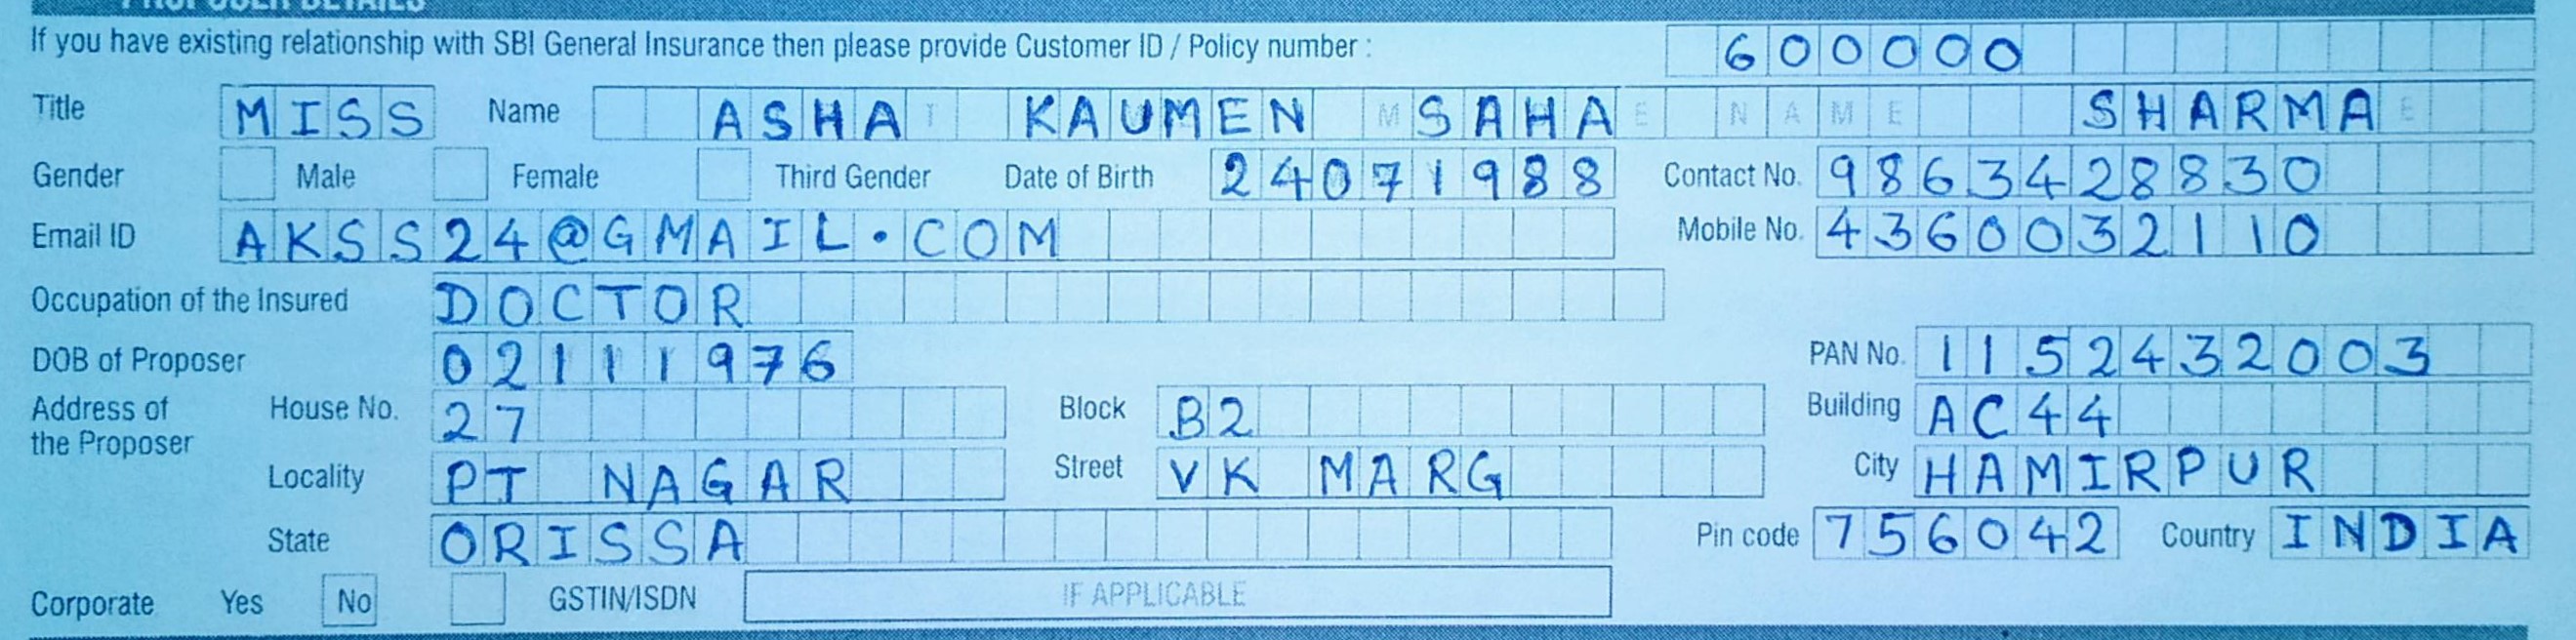 PROPOSER DETAILS
If you have existing relationship with SBI General Insurance then please provide Customer ID / Policy number : 600000
Title MISS Name ASHA KAUMEN SAHA NAME SHARMA
Gender Male Female Third Gender Date of Birth 24071988 Contact No. 9863428830
Email ID AKSS24@GMAIL.COM Mobile No. 4360032110
Occupation of the Insured DOCTOR
DOB of Proposer 02111976 PAN No. 1152432003
Address of the Proposer House No. 27 Block B2 Building AC44
Locality PT NAGAR Street VK MARG City HAMIRPUR
State ORISSA Pin code 756042 Country INDIA
Corporate Yes No GSTIN/ISDN IF APPLICABLE